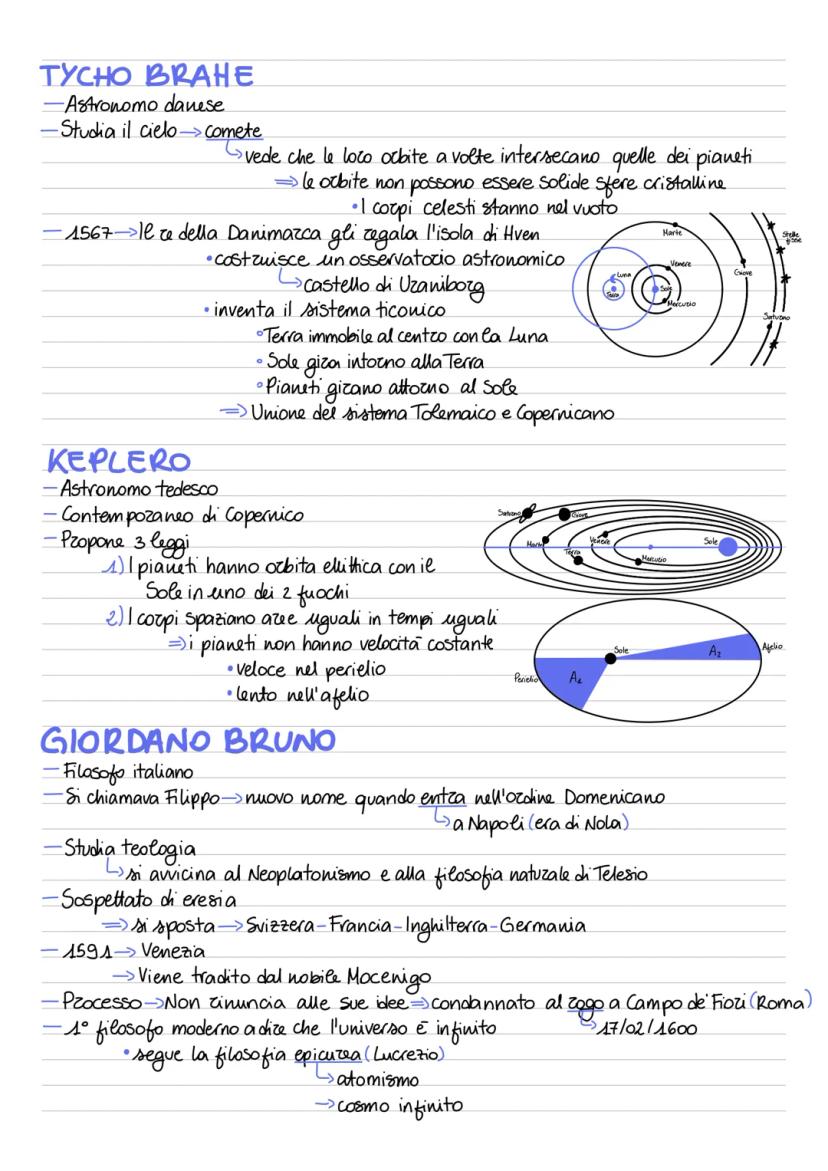 TYCHO BRAHE
— Astronomo danese
— Studia il cielo → comete
↳ vede che le loro orbite a volte intersecano quelle dei pianeti
⇒ le orbite non possono essere solide sfere cristalline
• I corpi celesti stanno nel vuoto
— 1567 → Il re della Danimarca gli regala l'isola di Hven
• costruisce un osservatorio astronomico
↳ castello di Uraniborg
• inventa il sistema ticonico
° Terra immobile al centro con la Luna
° Sole gira intorno alla Terra
° Pianeti girano attorno al Sole
⇒ Unione del sistema Tolemaico e Copernicano
Marte
Stelle fisse
Venere
Luna
Giove
Terra
Sole
Mercurio
Saturno
KEPLERO
— Astronomo tedesco
— Contemporaneo di Copernico
— Propone 3 leggi
1) I pianeti hanno orbita ellittica con il
Sole in uno dei 2 fuochi
2) I corpi spaziano aree uguali in tempi uguali
⇒ i pianeti non hanno velocità costante
• veloce nel perielio
• lento nell'afelio
Saturno
Giove
Marte
Venere
Sole
Terra
Mercurio
Sole
Afelio
A₂
Perielio
A₁
GIORDANO BRUNO
— Filosofo italiano
— Si chiamava Filippo → nuovo nome quando entra nell'ordine Domenicano
↳ a Napoli (era di Nola)
— Studia teologia
↳ si avvicina al Neoplatonismo e alla filosofia naturale di Telesio
— Sospettato di eresia
⇒ si sposta → Svizzera - Francia - Inghilterra - Germania
— 1591 → Venezia
→ Viene tradito dal nobile Mocenigo
— Processo → Non rinuncia alle sue idee ⇒ condannato al rogo a Campo de' Fiori (Roma)
— 1° filosofo moderno a dire che l'universo è infinito ↳ 17/02/1600
• segue la filosofia epicurea (Lucrezio)
↳ atomismo
→ cosmo infinito